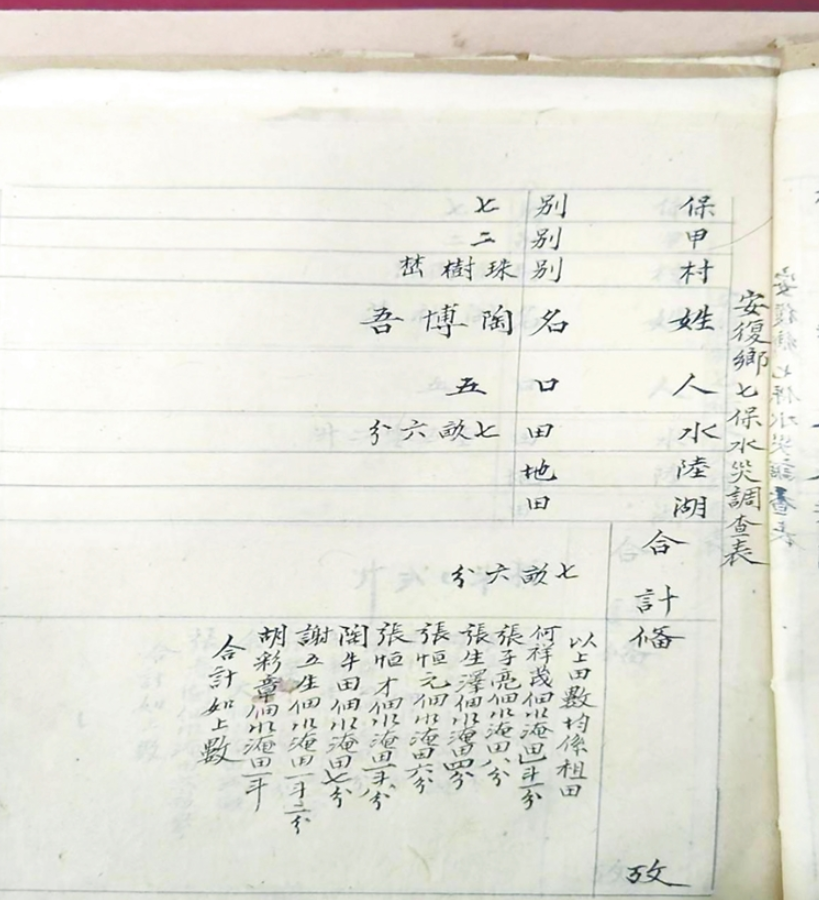 安復鄉七保水災調查表
保別 七
甲別 二
村別 珠樹嵆
姓名 陶博吾
人口 五
水田 七畝六分
陸地
湖田
合計 七畝六分
備攷
以上田數均係租田
何祥茂佃水淹田一斗一分
張子亮佃水淹田八分
張生澤佃水淹田四分
張恒元佃水淹田六分
張恒才佃水淹田一斗八分
陶牛田佃水淹田七分
謝五生佃水淹田一斗二分
胡彩章佃水淹田一斗
合計如上數